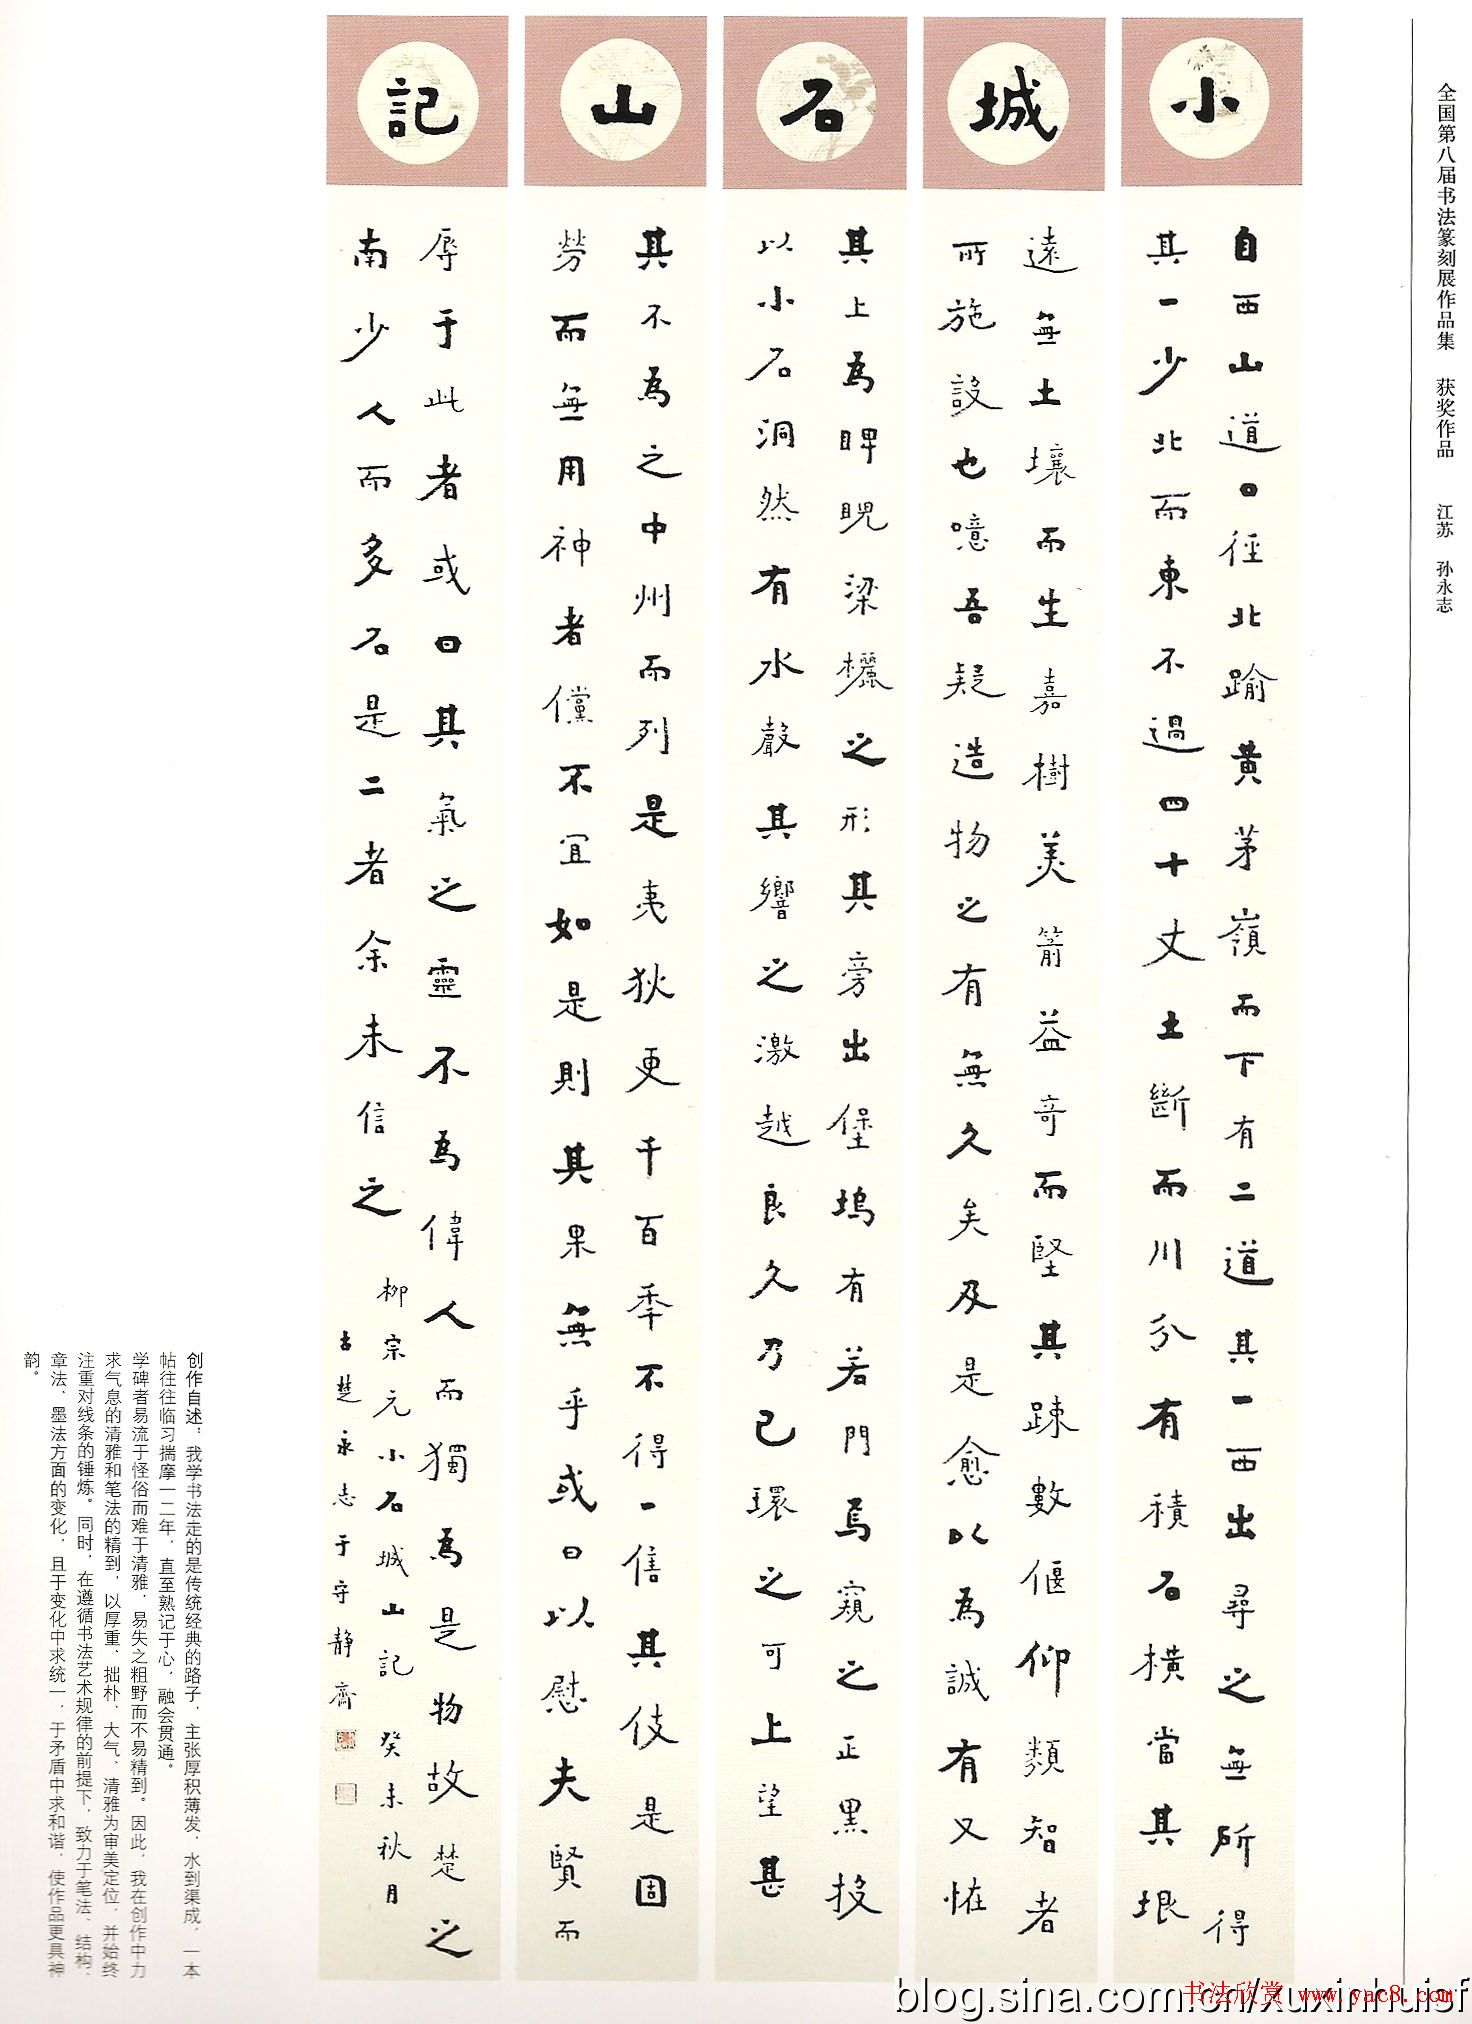 全国第八届书法篆刻展作品集 获奖作品 江苏 孙永志
小城石山記
自西山道口徑北踰黄茅嶺而下有二道其一西出尋之無所得
其一少北而東不過四十丈土斷而川分有積石橫當其垠
遠無土壤而生嘉樹美箭益奇而堅其踈數偃仰類智者
所施設也噫吾疑造物之有無久矣及是愈以為誠有又恠
其上為睥睨梁欐之形其旁出堡塢有若門焉窺之正黑投
以小石洞然有水聲其響之激越良久乃已環之可上望甚
其不為之中州而列是夷狄更千百秊不得一售其伎是固
勞而無用神者儻不宜如是則其果無乎或曰以慰夫賢而
辱于此者或曰其氣之靈不為偉人而獨為是物故楚之
南少人而多石是二者余未信之
柳宗元小石城山記 癸未秋月
古楚永志于守静齋
创作自述，我学书法走的是传统经典的路子，主张厚积薄发，水到渠成，一本
帖往往临习揣摩一二年，直至熟记于心，融会贯通。
学碑者易流于怪俗而难于清雅，易失之粗野而不易精到。因此，我在创作中力
求气息的清雅和笔法的精到，以厚重、拙朴、大气、清雅为审美定位，并始终
注重对线条的锤炼。同时，在遵循书法艺术规律的前提下，致力于笔法、结构、
章法、墨法方面的变化，且于变化中求统一，于矛盾中求和谐，使作品更具神
韵。
blog.sina.com.cn/xuxinhuisf
书法欣赏 www.yac8.com